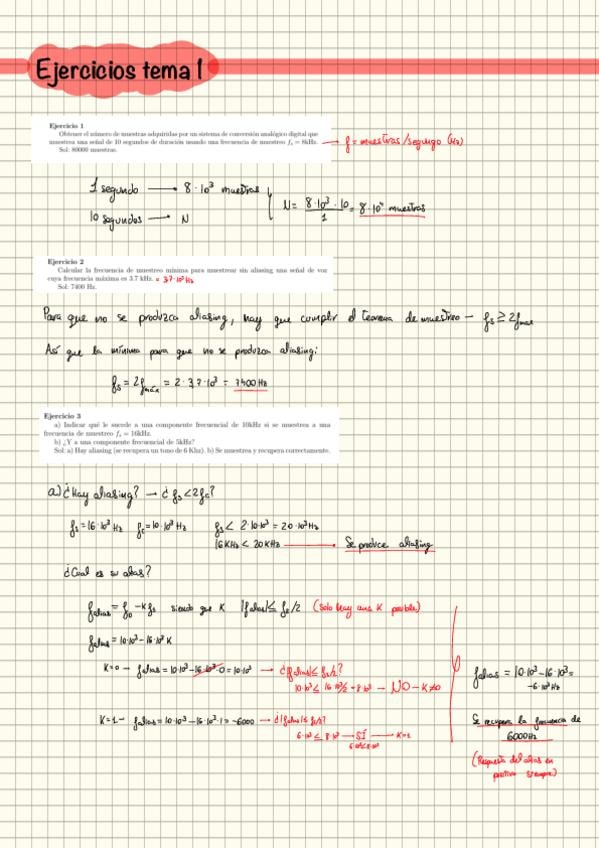 Ejercicios tema 1
Ejercicio 1
Obtener el número de muestras adquiridas por un sistema de conversión analógico digital que
muestrea una señal de 10 segundos de duración usando una frecuencia de muestreo fs = 8kHz.
Sol: 80000 muestras.
→ f = muestras/segungo (Hz)
1 segundo → 8·10³ muestras
10 segundos → N
N = 8·10³·10/1 = 8·10⁴ muestras
Ejercicio 2
Calcular la frecuencia de muestreo mínima para muestrear sin aliasing una señal de voz
cuya frecuencia máxima es 3.7 kHz. = 3'7·10³ Hz
Sol: 7400 Hz.
Para que no se produzca aliasing, hay que cumplir el teorema de muestreo - fs ≥ 2fmax
Así que la mínima para que no se produzca aliasing:
fs = 2fmáx = 2·3'7·10³ = 7400 Hz
Ejercicio 3
a) Indicar qué le sucede a una componente frecuencial de 10kHz si se muestrea a una
frecuencia de muestreo fs = 16kHz.
b) ¿Y a una componente frecuencial de 5kHz?
Sol: a) Hay aliasing (se recupera un tono de 6 Khz). b) Se muestrea y recupera correctamente.
a) ¿Hay aliasing? → ¿fs < 2fc?
fs = 16·10³ Hz fc = 10·10³ Hz fs < 2·10·10³ = 20·10³ Hz
16 KHz < 20 KHz → Se produce aliasing
¿Cual es su alias?
falias = f0 - K fs siendo que K |falias| ≤ fs/2 (Solo hay una K posible)
falias = 10·10³ - 16·10³ K
K=0 → falias = 10·10³ - 16·10³·0 = 10·10³ → ¿|falias| ≤ fs/2?
10·10³ ≤ 16·10³/2 = 8·10³ → NO - K≠0
K=1 → falias = 10·10³ - 16·10³·1 = -6000 → ¿|falias| ≤ fs/2?
6·10³ ≤ 8·10³ → SÍ → K=1
6·10³ ≤ 8·10³
falias = 10·10³ - 16·10³ =
-6·10³ Hz
Se recupera la frecuencia de
6000 Hz
(Respuesta del alias en
positivo siempre)